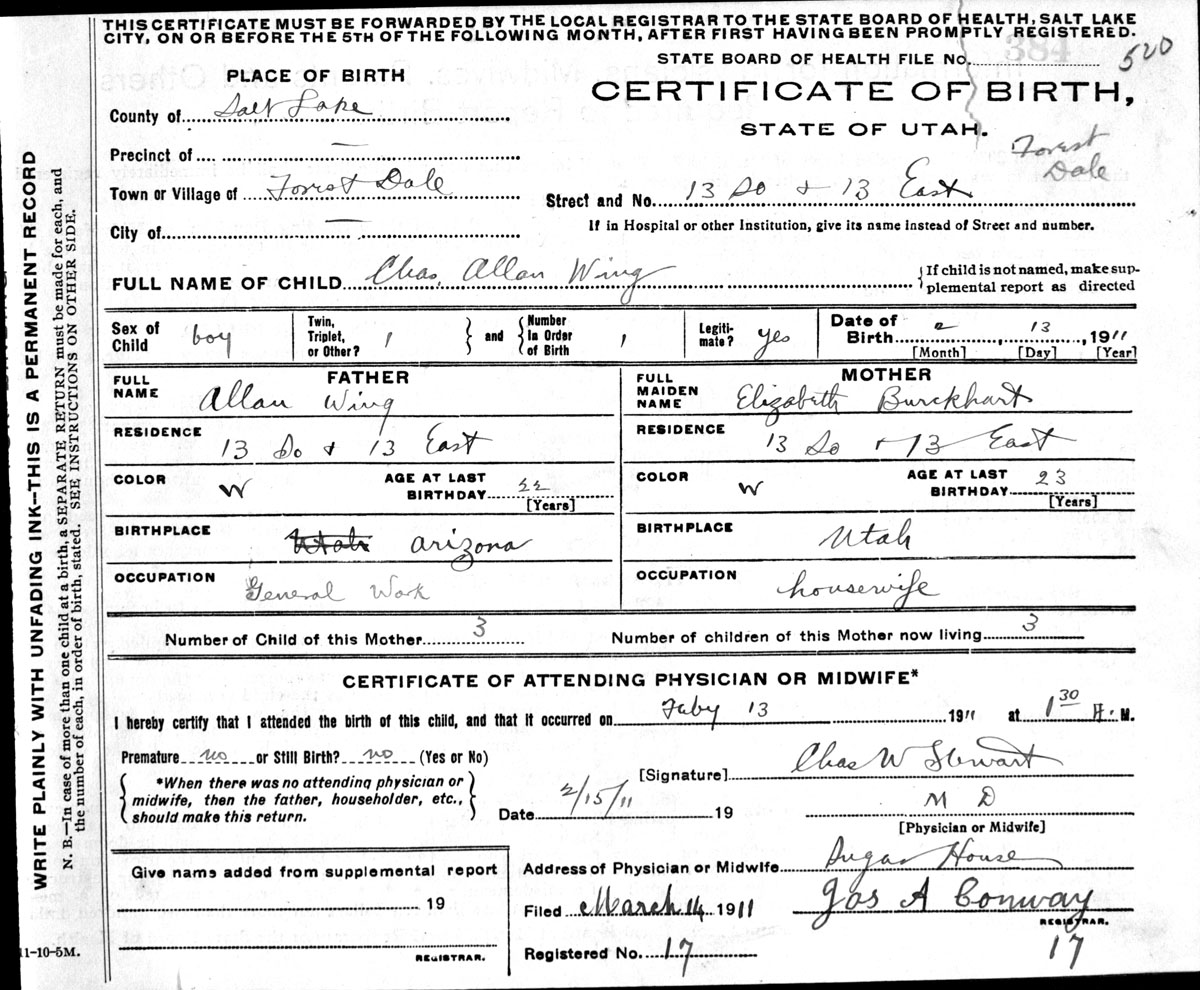 THIS CERTIFICATE MUST BE FORWARDED BY THE LOCAL REGISTRAR TO THE STATE BOARD OF HEALTH, SALT LAKE
CITY, ON OR BEFORE THE 5TH OF THE FOLLOWING MONTH, AFTER FIRST HAVING BEEN PROMPTLY REGISTERED.
STATE BOARD OF HEALTH FILE No. 384 520
PLACE OF BIRTH
CERTIFICATE OF BIRTH,
County of Salt Lake
STATE OF UTAH.
Precinct of —
Forest Dale
Town or Village of Forest Dale
Street and No. 13 So + 13 East
City of —
If in Hospital or other Institution, give its name instead of Street and number.
FULL NAME OF CHILD Chas. Allan Wing
{If child is not named, make sup-
plemental report as directed
Sex of Child boy
Twin, Triplet, or Other? 1
and
Number In Order of Birth 1
Legiti-mate? yes
Date of Birth 2, 13, 1911
[Month] [Day] [Year]
FATHER
FULL NAME Allan Wing
RESIDENCE 13 So + 13 East
COLOR W
AGE AT LAST BIRTHDAY 22
[Years]
BIRTHPLACE Utah Arizona
OCCUPATION General Work
MOTHER
FULL MAIDEN NAME Elizabeth Burckhart
RESIDENCE 13 So + 13 East
COLOR W
AGE AT LAST BIRTHDAY 23
[Years]
BIRTHPLACE Utah
OCCUPATION housewife
Number of Child of this Mother 3
Number of children of this Mother now living 3
CERTIFICATE OF ATTENDING PHYSICIAN OR MIDWIFE*
I hereby certify that I attended the birth of this child, and that it occurred on Feby 13 1911 at 1 30 A. M.
Premature no or Still Birth? no (Yes or No)
*When there was no attending physician or
midwife, then the father, householder, etc.,
should make this return.
[Signature] Chas W Stewart
Date 2/15/11 19
M D
[Physician or Midwife]
Give name added from supplemental report
19
REGISTRAR.
Address of Physician or Midwife Sugar House
Filed March 14 1911
Jos A Conway
REGISTRAR.
Registered No. 17
17
11-10-5M.
WRITE PLAINLY WITH UNFADING INK—THIS IS A PERMANENT RECORD
N. B.—In case of more than one child at a birth, a SEPARATE RETURN must be made for each, and
the number of each, in order of birth, stated. SEE INSTRUCTIONS ON OTHER SIDE.